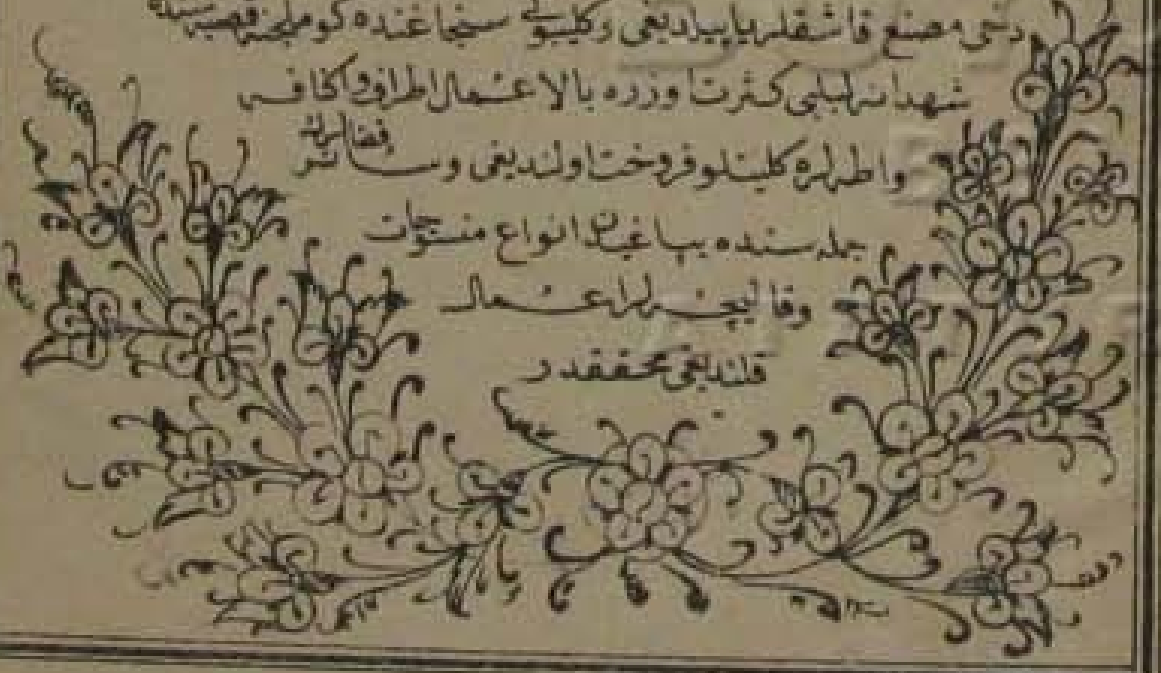 دخی مصنع قاشقلر یاپیلدیغی وکلیبولی سنجاغنده كوملجنه قصبه سنده
شهدانه لبلبی كثرت اوزره بالاعمال اطراف واكافه
واطه لره كلینلو فروخت اولندیغی وسائر قضالرك
جمله سنده بیاغیان انواع منسوجات
وقالیچه لر اعمال
قلندیغی محققدر